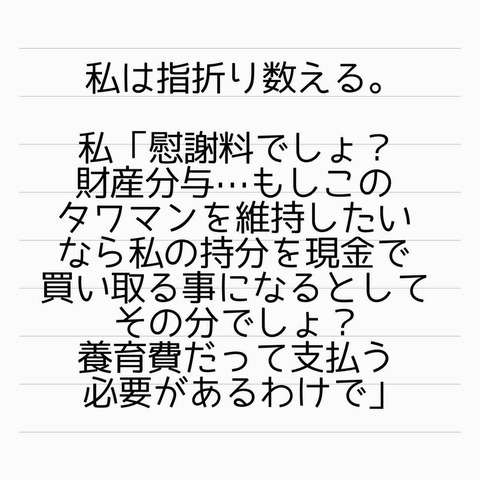 私は指折り数える。
私「慰謝料でしょ？
財産分与…もしこの
タワマンを維持したい
なら私の持分を現金で
買い取る事になるとして
その分でしょ？
養育費だって支払う
必要があるわけで」